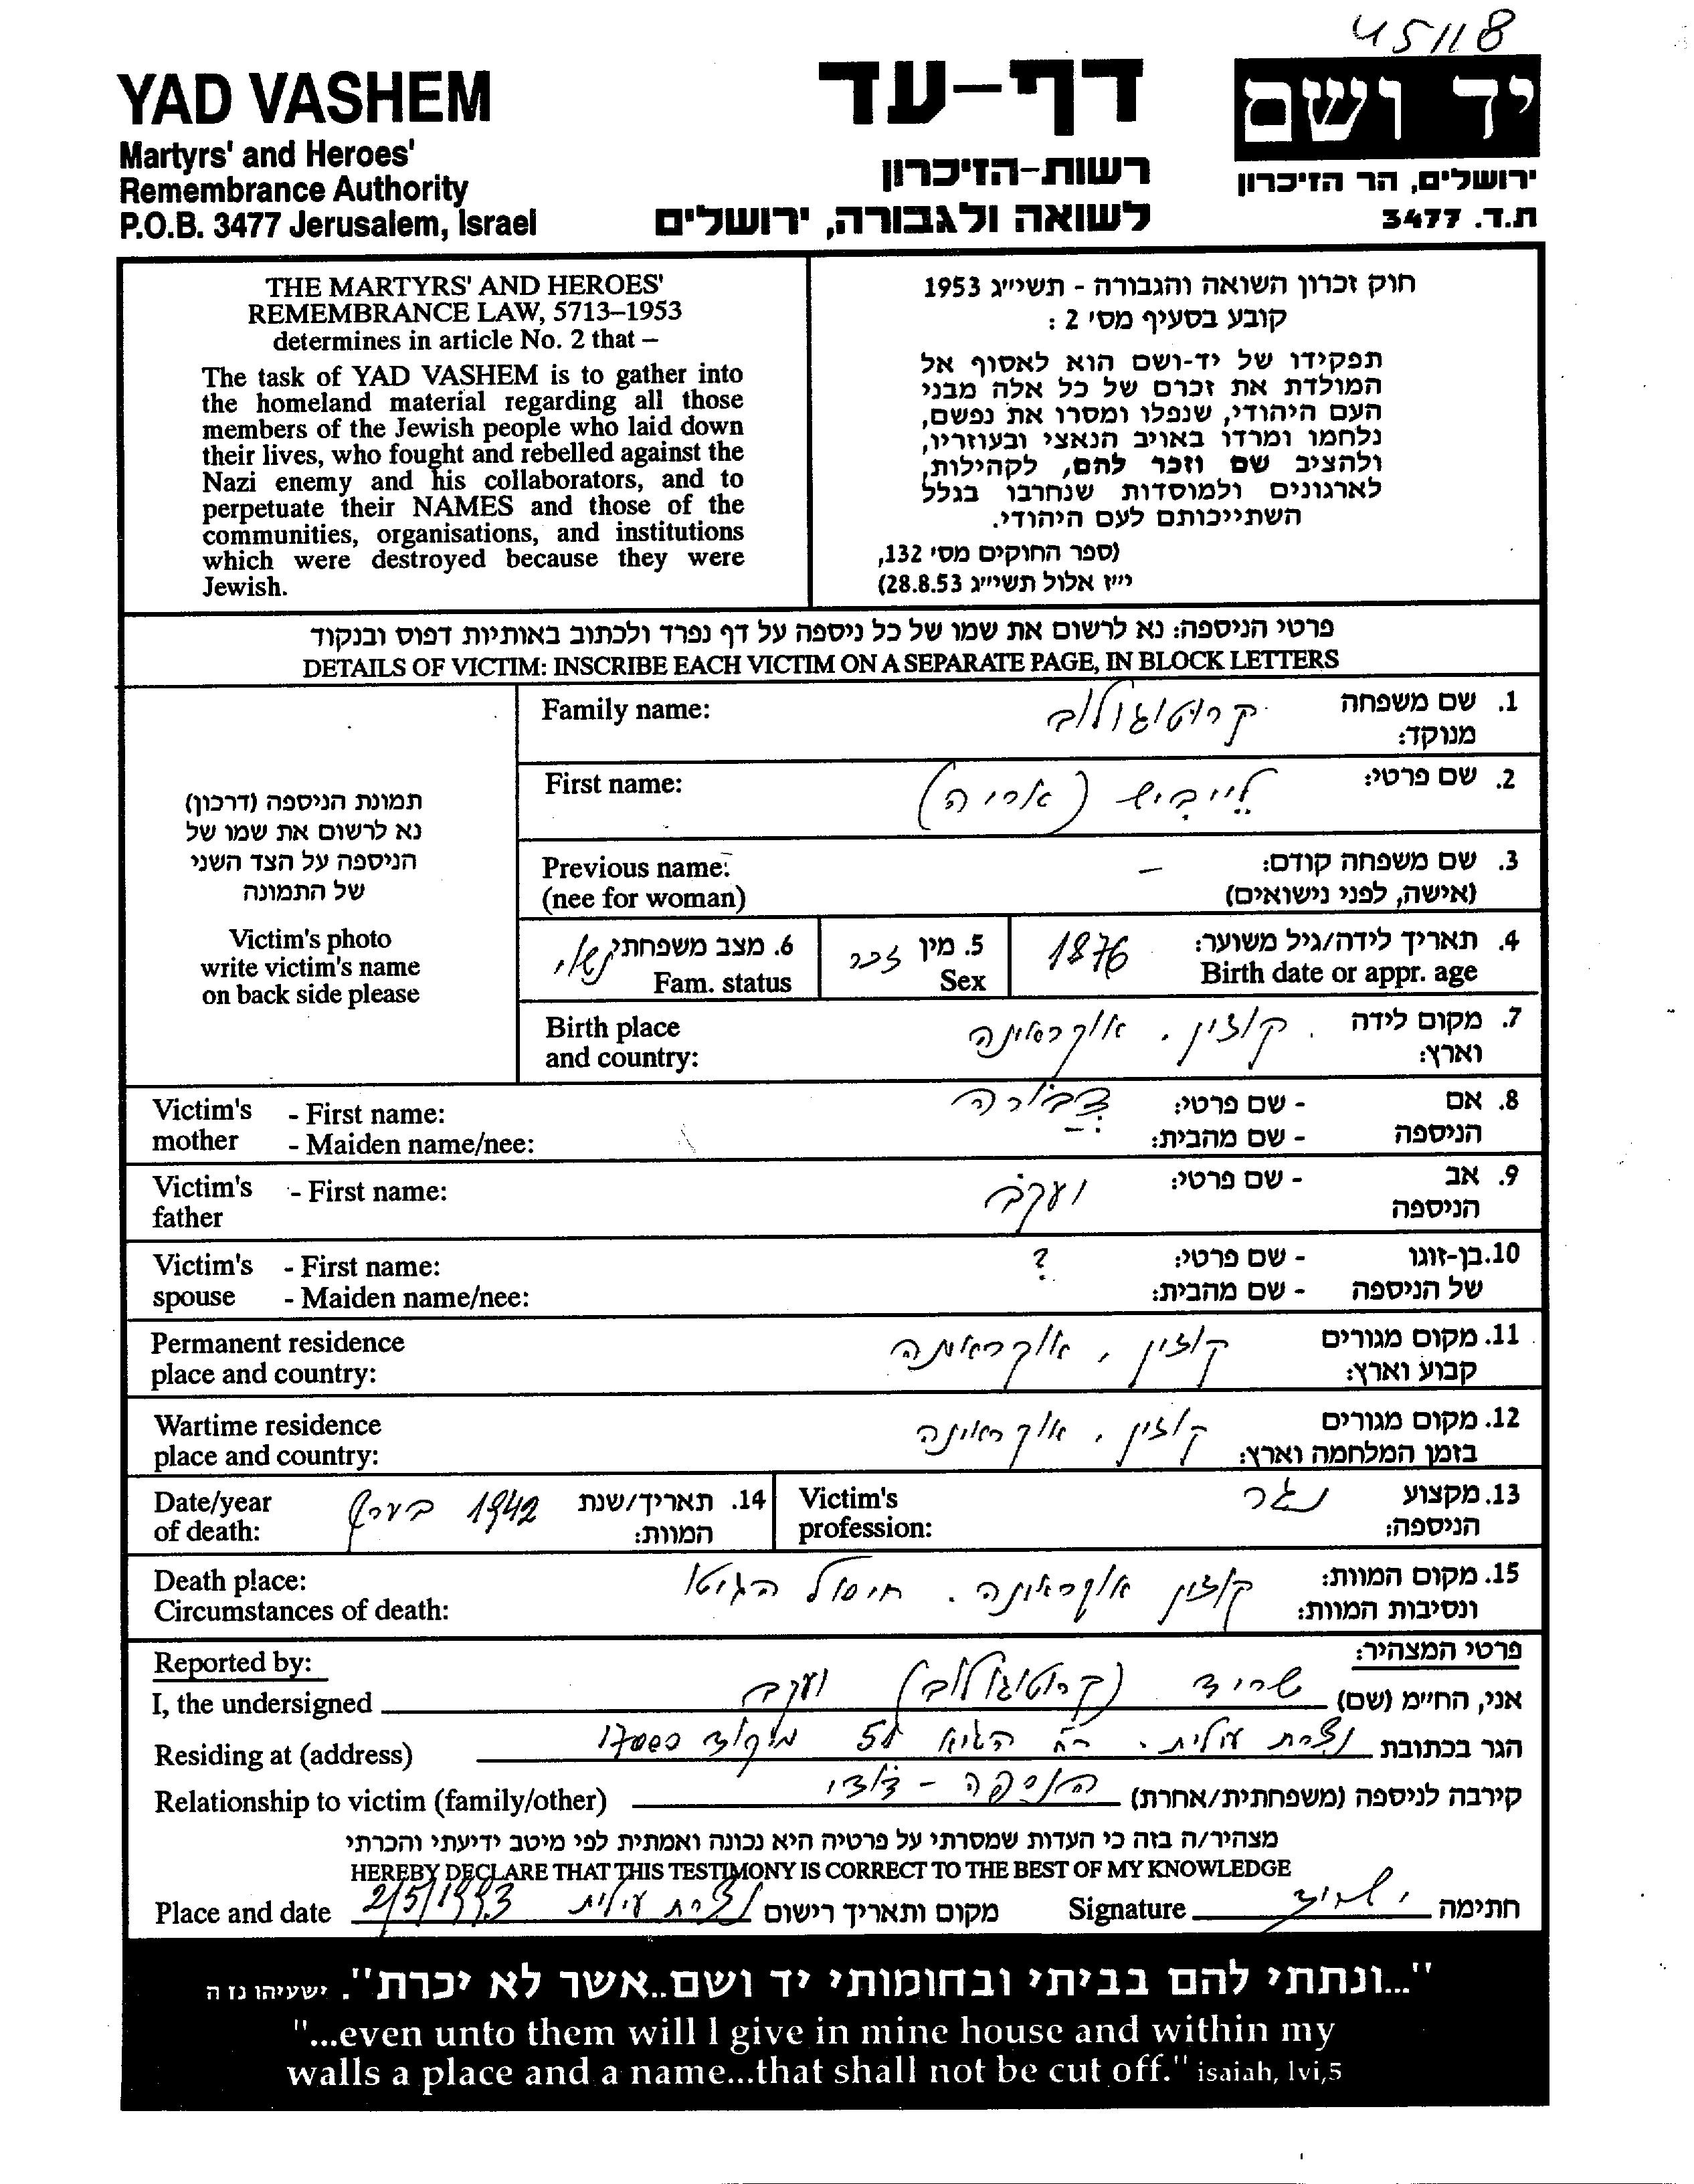 45118
YAD VASHEM
Martyrs' and Heroes'
Remembrance Authority
P.O.B. 3477 Jerusalem, Israel
דף-עד
רשות-הזיכרון
לשואה ולגבורה, ירושלים
יד ושם
ירושלים, הר הזיכרון
ת.ד. 3477
THE MARTYRS' AND HEROES'
REMEMBRANCE LAW, 5713–1953
determines in article No. 2 that –
The task of YAD VASHEM is to gather into
the homeland material regarding all those
members of the Jewish people who laid down
their lives, who fought and rebelled against the
Nazi enemy and his collaborators, and to
perpetuate their NAMES and those of the
communities, organisations, and institutions
which were destroyed because they were
Jewish.
חוק זכרון השואה והגבורה - תשי״ג 1953
קובע בסעיף מס׳ 2 :
תפקידו של יד-ושם הוא לאסוף אל
המולדת את זכרם של כל אלה מבני
העם היהודי, שנפלו ומסרו את נפשם,
נלחמו ומרדו באויב הנאצי ובעוזריו,
ולהציב שם וזכר להם, לקהילות,
לארגונים ולמוסדות שנחרבו בגלל
השתייכותם לעם היהודי.
(ספר החוקים מס׳ 132,
י״ז אלול תשי״ג 28.8.53)
פרטי הניספה: נא לרשום את שמו של כל ניספה על דף נפרד ולכתוב באותיות דפוס ובנקוד
DETAILS OF VICTIM: INSCRIBE EACH VICTIM ON A SEPARATE PAGE, IN BLOCK LETTERS
תמונת הניספה (דרכון)
נא לרשום את שמו של
הניספה על הצד השני
של התמונה
Victim's photo
write victim's name
on back side please
Family name: קרוטוגולוב 1. שם משפחה
מנוקד:
First name: לייביש (אריה) 2. שם פרטי:
Previous name: – 3. שם משפחה קודם:
(nee for woman) (אישה, לפני נישואים)
4. תאריך לידה/גיל משוער: 1876 5. מין זכר 6. מצב משפחתי נשוי
Birth date or appr. age Sex Fam. status
Birth place קוזין. אוקראינה 7. מקום לידה
and country: וארץ:
Victim's - First name: דבורה - שם פרטי: 8. אם
mother - Maiden name/nee: - שם מהבית: הניספה
Victim's - First name: יעקב - שם פרטי: 9. אב
father הניספה
Victim's - First name: ? - שם פרטי: 10. בן-זוגו
spouse - Maiden name/nee: - שם מהבית: של הניספה
Permanent residence קוזין, אוקראינה 11. מקום מגורים
place and country: קבוע וארץ:
Wartime residence קוזין, אוקראינה 12. מקום מגורים
place and country: בזמן המלחמה וארץ:
Date/year 1942 14. תאריך/שנת
of death: המוות:
Victim's נגר 13. מקצוע
profession: הניספה:
Death place: קוזין אוקראינה. חיסול הגיטו 15. מקום המוות:
Circumstances of death: ונסיבות המוות:
Reported by: פרטי המצהיר:
I, the undersigned שריד (קרוטוגולוב) יעקב אני, החי״מ (שם)
Residing at (address) נצרת עילית. רח הגיא 51 מיקוד 17000 הגר בכתובת
Relationship to victim (family/other) דודי קירבה לניספה (משפחתית/אחרת)
מצהיר/ה בזה כי העדות שמסרתי על פרטיה היא נכונה ואמתית לפי מיטב ידיעתי והכרתי
HEREBY DECLARE THAT THIS TESTIMONY IS CORRECT TO THE BEST OF MY KNOWLEDGE
Place and date 2/5/1993 נצרת עילית מקום ותאריך רישום Signature י. שריד חתימה
"...ונתתי להם בביתי ובחומותי יד ושם..אשר לא יכרת". ישעיהו נז ה
"...even unto them will I give in mine house and within my
walls a place and a name...that shall not be cut off." isaiah, lvi,5